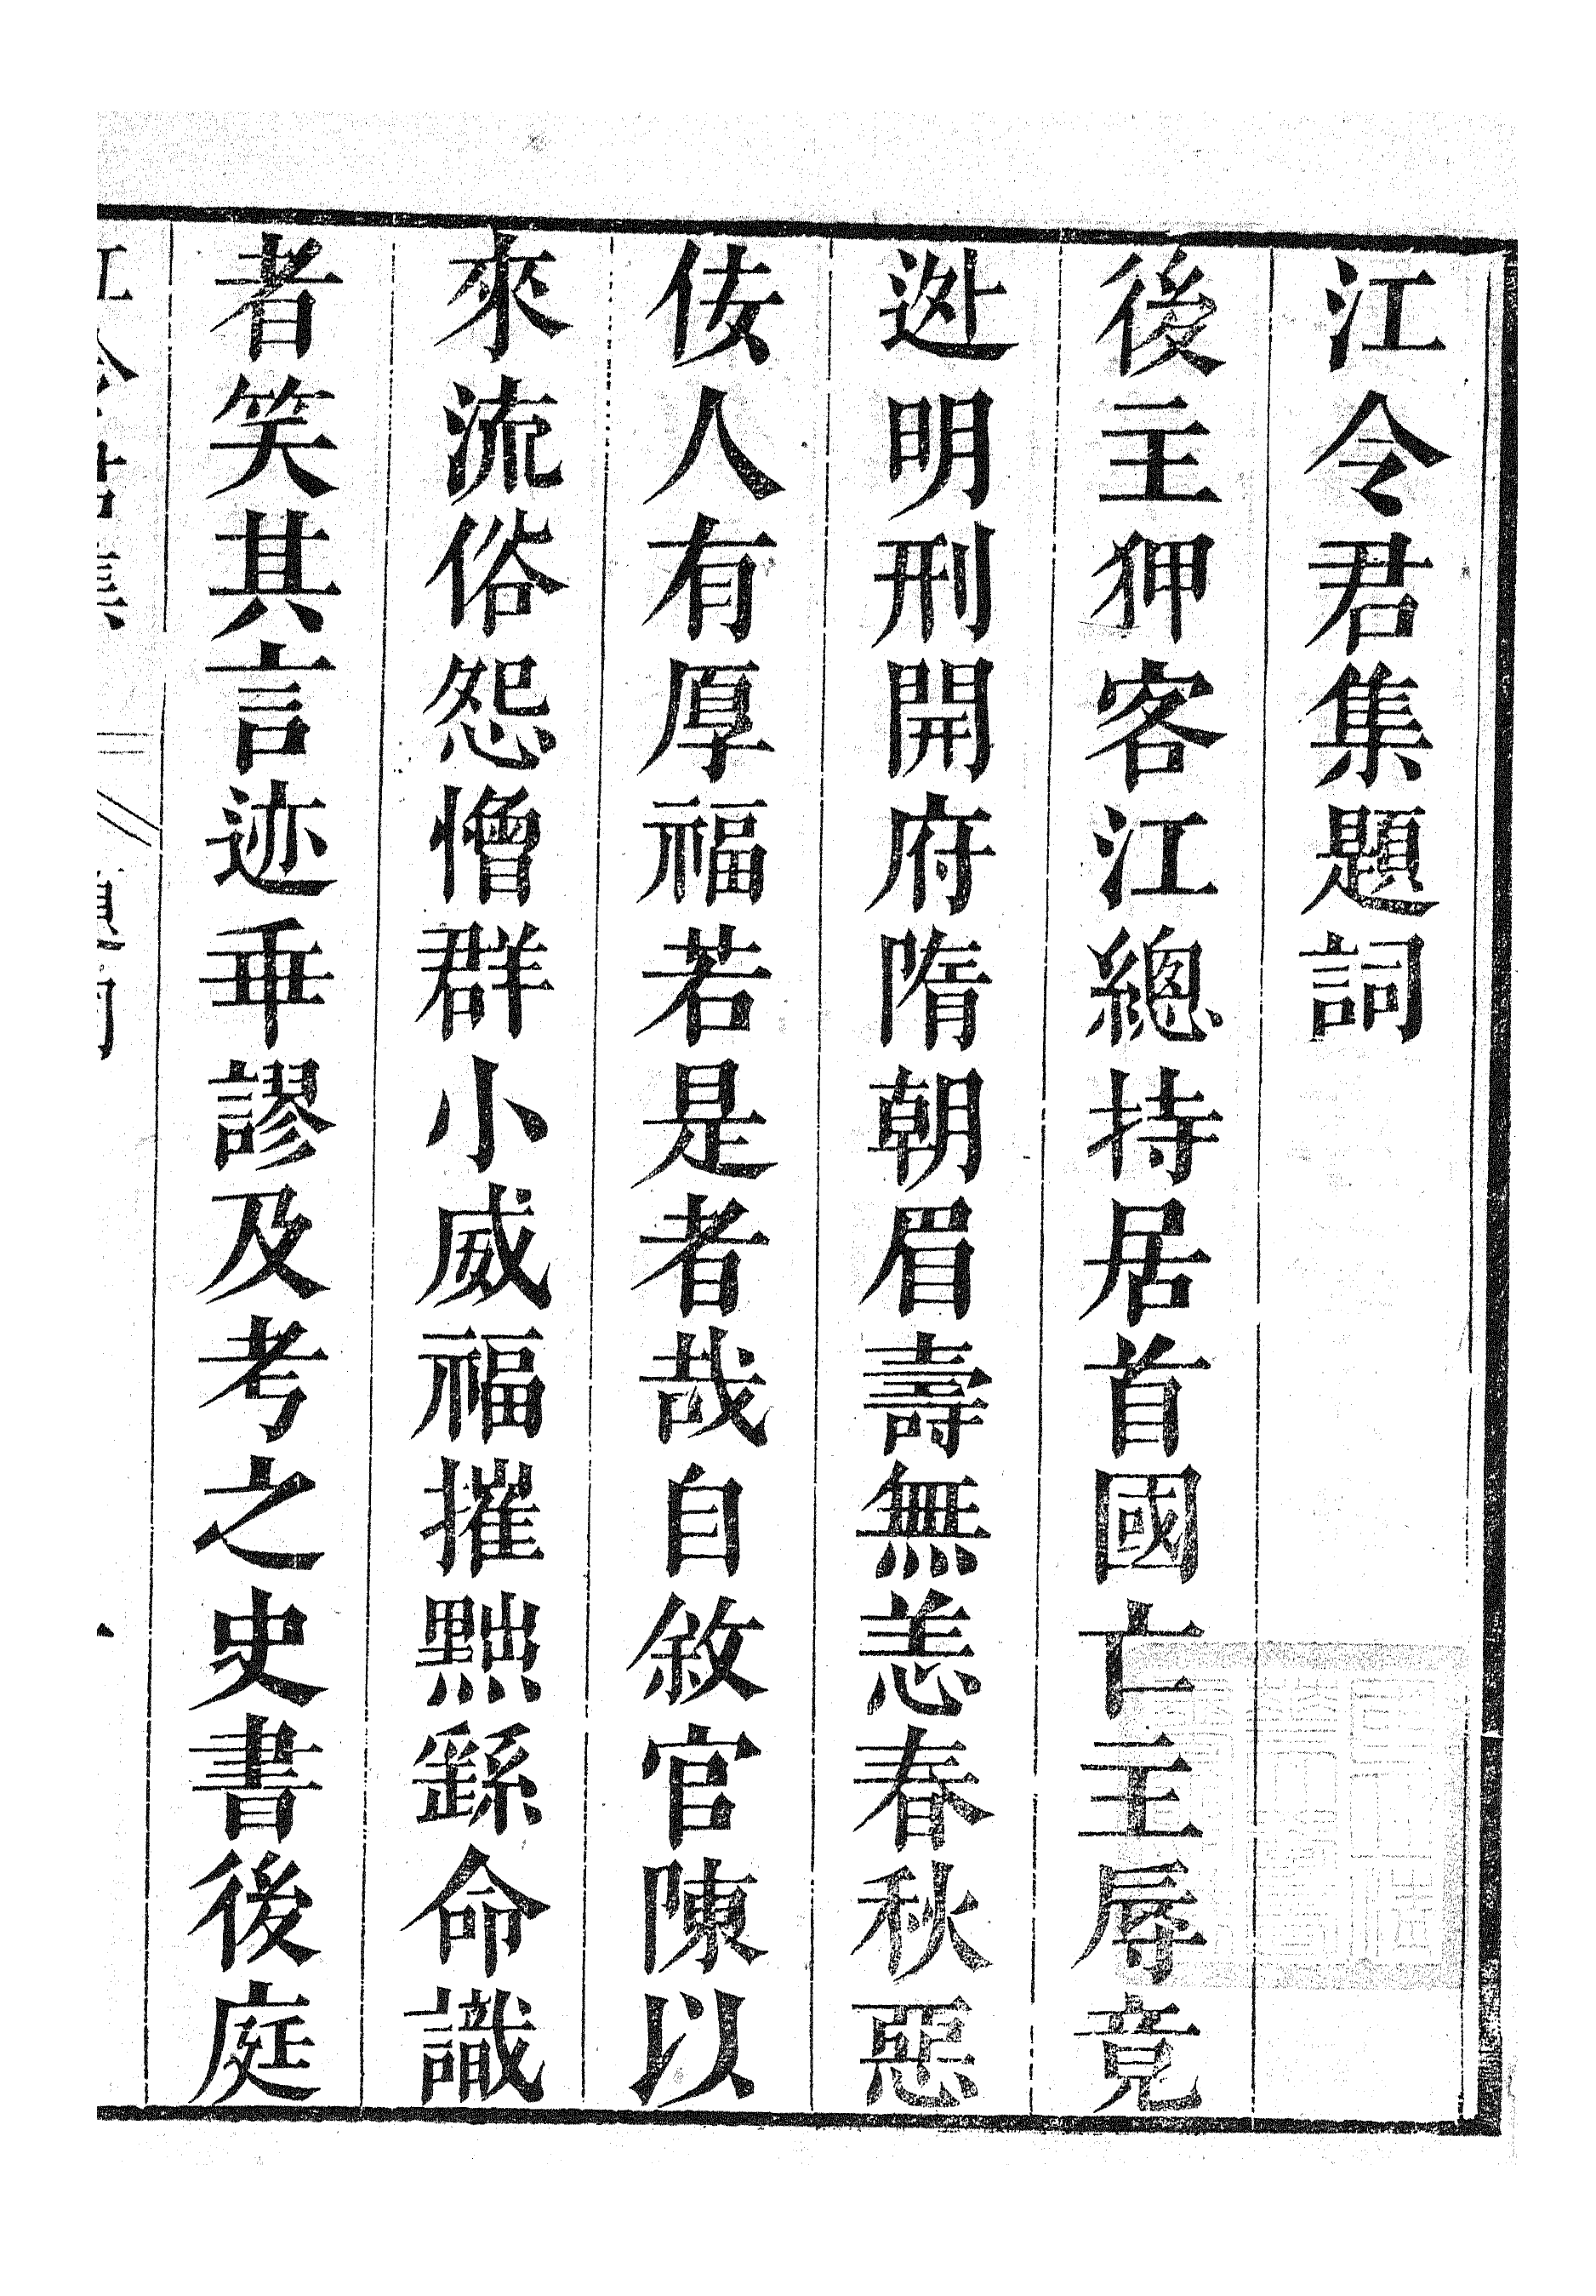 江令君集題詞
後主狎客江總持居首國亡主辱竟
逃明刑開府隋朝眉壽無恙春秋惡
佞人有厚福若是者哉自敘官陳以
來流俗怨憎群小威福摧黜繇命識
者笑其言迹乖謬及考之史書後庭